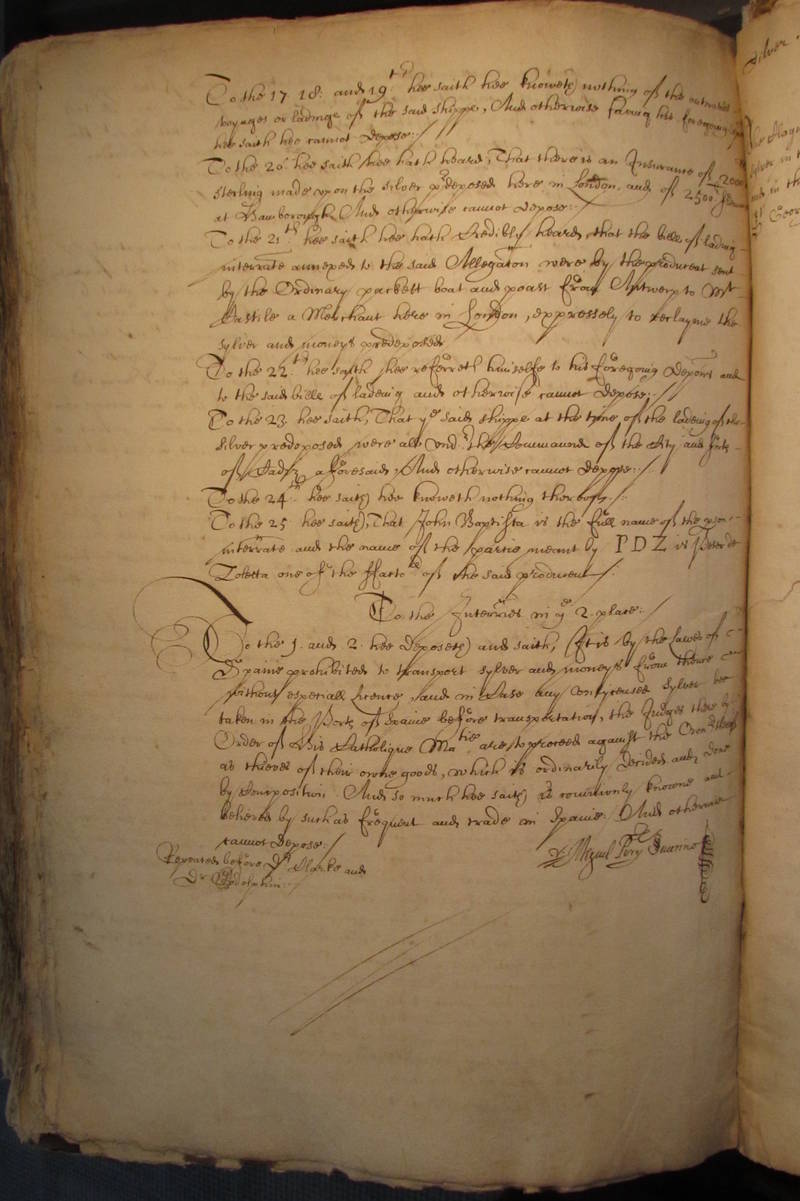 To the 17 18: and 19th hee saith hee knoweth nothing of the outward
voyages or ladinge of the said shippe, And otherwise saving his foregoing
hee saith hee cannot depose:/
To the 20. hee saith hee hath heard, That there is an Insurance of 2000
sterling made upon the silver predeposed here in London, and of 2500
at Hamborough, And otherwise cannot depose:/
To the 21th hee saith hee hath Credibly heard, that the bills of lading
interrate annexed to the said Allegation were by the producent sent
by the Ordinary packett boat and poast from Antwerp to Mr
a Merchant here in London, expressely to reclayme the
sylver and moneys predeposed
To the 22th hee saith hee referreth himselfe to his foregoing deposition and
to the said bills of lading and otherwise cannot depose:/
To the 23. hee saith, That ye said shippe at the tyme of the lading of the
silver predeposed were all under the Commaund of the City and
of Cadiz aforesaid, And otherwise cannot depose:/
To the 24th hee saith hee knoweth nothing thereof:/:
To the 25 hee saith, That John Baptista is the full name of the
interrate and the name of the partie meant by PDZ is Peter de
Zoletta one of the Factors of the said producent/.
To the Interries in ye 2. place:/
To the 1. and 2. hee deposeth and saith, It is by the Lawes of
Spaine prohibited to transport sylver and moneys from thence
without especiall licence, and in Case any unlycensed Sylver bee
taken in the Ports of Spaine before transportation, the Judges there by
Order of His Catholique Matie are to proceed against the Owners
as theeves of their owne goods, which is ordinarily decided and done
by Composition And so much hee saith is commonly knowne and
beleived by such as frequent and trade in Spaine. And otherwise
cannot depose:/
Repeated before Dr Clarke and
Dr Godolphin:/
Miguel